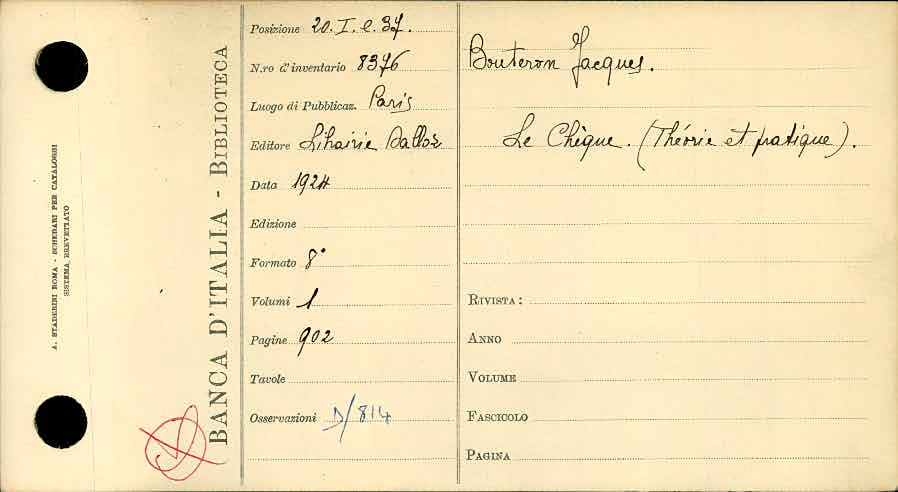 A. STADERINI ROMA - SCHEDARI PER CATALOGHI
SISTEMA BREVETTATO
BANCA D'ITALIA - BIBLIOTECA
Posizione 20. I. e. 37.
N.ro d'inventario 8376
Luogo di Pubblicaz. Paris
Editore Librairie Dalloz
Data 1924
Edizione
Formato 8°
Volumi 1
Pagine 902
Tavole
Osservazioni D/814
Bouteron Jacques.
Le Chèque. (Théorie et pratique).
RIVISTA:
ANNO
VOLUME
FASCICOLO
PAGINA